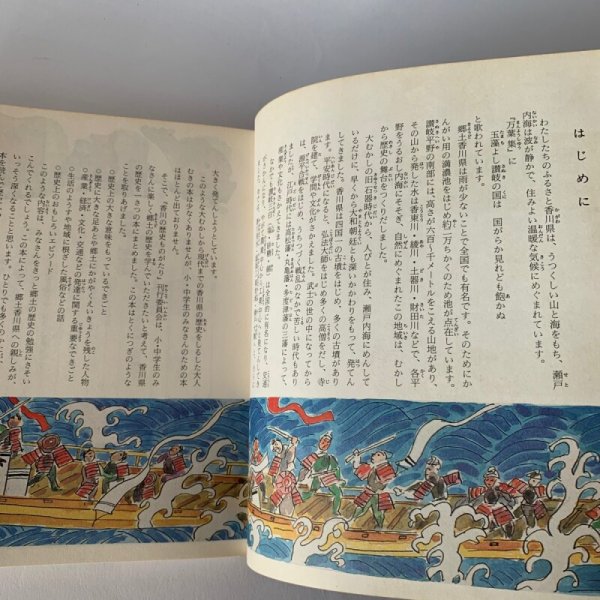 はじめに
わたしたちのふるさと香川県は、うつくしい山と海をもち、瀬戸
内海は波が静かで、住みよい温暖な気候にめぐまれています。
『万葉集』に
玉藻よし讃岐の国は 国がらか見れども飽かぬ
と歌われています。
郷土香川県は雨が少ないことで全国でも有名です。そのためにか
んがい用の満濃池をはじめ約二万ちかくのため池が点在しています。
讃岐平野の南部には高さが六百〜千メートルをこえる山地があり、
その山から発した水は香東川・綾川・土器川・財田川などで、各平
野をうるおし内海にそそぎ、自然にめぐまれたこの地域は、むかし
から歴史の舞台をつくりだしました。
大むかしの旧石器時代から、人びとが住み、瀬戸内海にめんして
いるだけに、早くから大和朝廷とも深いかかわりをもって、発てん
してきました。香川県は四国一の古墳をはじめ、多くの古墳があり
ます。平安時代になると、弘法大師をはじめ多くの高僧をだし、寺
院を建て、学問や文化がさかえました。武士の世の中になってから
は、源平合戦をはじめ、うちつづく戦乱のなかで苦しい時代もあり
ましたが、江戸時代には高松藩・丸亀藩・多度津藩の三藩によって、
は全国的に有名になり、交通
大きく発てんしようとしています。
このような大むかしから現代までの香川県の歴史をしるした大人
むきの本は少なくありませんが、小・中学生のみなさんのための本
はほとんど出ておりません。
そこで、「香川の歴史ものがたり」刊行委員会は、小・中学生のみ
なさんに楽しく郷土の歴史を学んでいただきたいと考えて、香川県
の歴史を一さつの本にまとめました。この本はとくにつぎのような
ことを取りあげました。
○歴史の上の大きな意味をもっているできごと
○歴史に大きな足あとや郷土にかがやくいさおしを残した人物
○産業・経済・文化・交通などの発達に関する重要なできごと
○生活のようすや地域に根ざした風俗などの話
○歴史上のおもしろいエピソード
このような内容は、みなさんをきっと郷土の歴史の勉強にさそい
こんでくれるでしょう。この本によって、郷土香川県への親しみが、
いっそう深くなることと思います。ひとりでも多くのかた